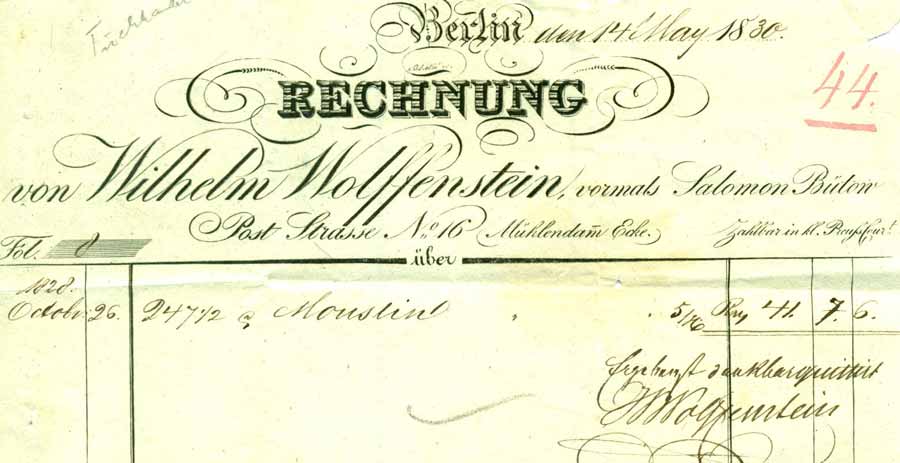 Berlin den 14 May 1830.
44.
RECHNUNG
von Wilhelm Wolffenstein, vormals Salomon Bütow
Post Strasse No. 16 (Mühlendam̄ Ecke.) Zahlbar in kl. Preuss Cour!
Fol. 8
über
1828.
Octobr. 26. 247 1/2 Mouslin 5/12 41. 7. 6.
Ergebenst dankbar quittirt
WWolffenstein